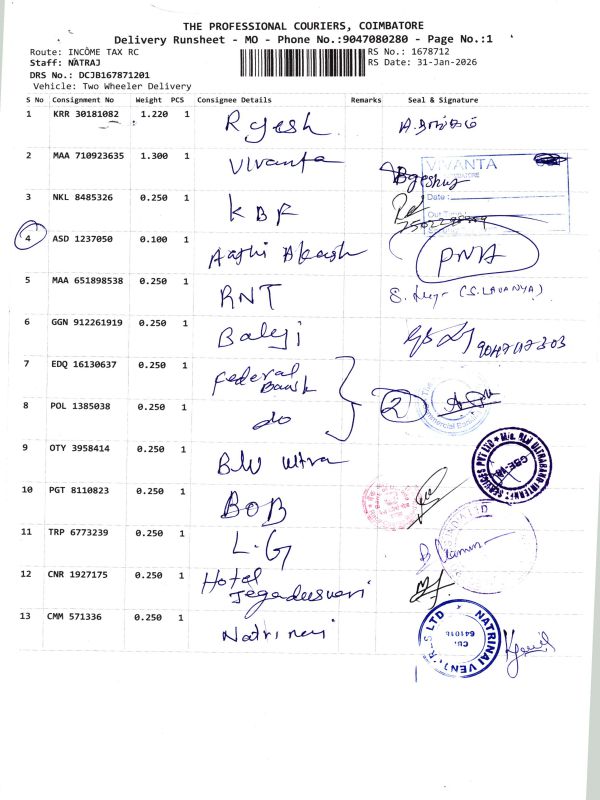 THE PROFESSIONAL COURIERS, COIMBATORE
Delivery Runsheet - MO - Phone No.:9047080280 - Page No.:1
Route: INCOME TAX RC
RS No.: 1678712
Staff: NATRAJ
RS Date: 31-Jan-2026
DRS No.: DCJB167871201
Vehicle: Two Wheeler Delivery
S No Consignment No Weight PCS Consignee Details Remarks Seal & Signature
1 KRR 30181082 1.220 1
2 MAA 710923635 1.300 1 Vivanta
VIVANTA
Date:
3 NKL 8485326 0.250 1 KBF
4 ASD 1237050 0.100 1 Aathi Akash PNA
5 MAA 651898538 0.250 1 RNT (S.LAVANYA)
6 GGN 912261919 0.250 1 Balaji
7 EDQ 16130637 0.250 1 Federal Bank
2
8 POL 1385038 0.250 1 do
9 OTY 3958414 0.250 1 Blu ultra
10 PGT 8110823 0.250 1 BOB
11 TRP 6773239 0.250 1 L.G
12 CNR 1927175 0.250 1 Hotal Jegadeeswari
13 CMM 571336 0.250 1
NATRINAI
CU.
641018